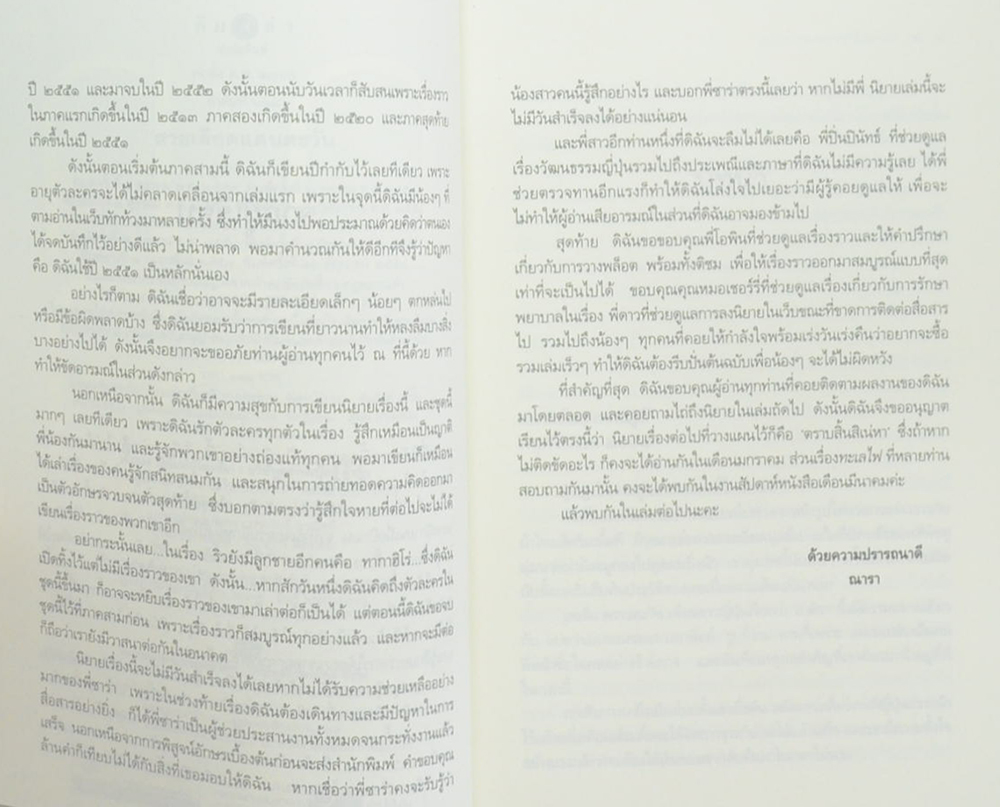 ปี ๒๕๕๑ และมาจบในปี ๒๕๕๒ ดังนั้นตอนนับวันเวลาก็สับสนเพราะเรื่องราว
ในภาคแรกเกิดขึ้นในปี ๒๕๑๓ ภาคสองเกิดขึ้นในปี ๒๕๒๐ และภาคสุดท้าย
เกิดขึ้นในปี ๒๕๕๑
ดังนั้นตอนเริ่มต้นภาคสามนี้ ดิฉันก็เขียนปีกำกับไว้เลยทีเดียว เพราะ
อายุตัวละครจะได้ไม่คลาดเคลื่อนจากเล่มแรก เพราะในจุดนี้ดิฉันมีน้องๆ ที่
ตามอ่านในเว็บทักท้วงมาหลายครั้ง ซึ่งทำให้มึนงงไปพอประมาณด้วยคิดว่าตนเอง
ได้จดบันทึกไว้อย่างดีแล้ว ไม่น่าพลาด พอมาคำนวณกันให้ดีอีกทีจึงรู้ว่าปัญหา
คือ ดิฉันใช้ปี ๒๕๕๑ เป็นหลักนั่นเอง
อย่างไรก็ตาม ดิฉันเชื่อว่าอาจจะมีรายละเอียดเล็กๆ น้อยๆ ตกหล่นไป
หรือมีข้อผิดพลาดบ้าง ซึ่งดิฉันยอมรับว่าการเขียนที่ยาวนานทำให้หลงลืมบางสิ่ง
บางอย่างไปได้ ดังนั้นจึงอยากจะขออภัยท่านผู้อ่านทุกคนไว้ ณ ที่นี้ด้วย หาก
ทำให้ขัดอารมณ์ในส่วนดังกล่าว
นอกเหนือจากนั้น ดิฉันก็มีความสุขกับการเขียนนิยายเรื่องนี้ และชุดนี้
มากๆ เลยทีเดียว เพราะดิฉันรักตัวละครทุกตัวในเรื่อง รู้สึกเหมือนเป็นญาติ
พี่น้องกันมานาน และรู้จักพวกเขาอย่างถ่องแท้ทุกคน พอมาเขียนก็เหมือน
ได้เล่าเรื่องของคนรู้จักสนิทสนมกัน และสนุกในการถ่ายทอดความคิดออกมา
เป็นตัวอักษรจวบจนตัวสุดท้าย ซึ่งบอกตามตรงว่ารู้สึกใจหายที่ต่อไปจะไม่ได้
เขียนเรื่องราวของพวกเขาอีก
อย่ากระนั้นเลย...ในเรื่อง ริวยังมีลูกชายอีกคนคือ ทากาฮิโร่...ซึ่งดิฉัน
เปิดทิ้งไว้แต่ไม่มีเรื่องราวของเขา ดังนั้น...หากสักวันหนึ่งดิฉันคิดถึงตัวละครใน
ชุดนี้ขึ้นมา ก็อาจจะหยิบเรื่องราวของเขามาเล่าต่อก็เป็นได้ แต่ตอนนี้ดิฉันขอจบ
ชุดนี้ไว้ที่ภาคสามก่อน เพราะเรื่องราวก็สมบูรณ์ทุกอย่างแล้ว และหากจะมีต่อ
ก็ถือว่าเรายังมีวาสนาต่อกันในอนาคต
นิยายเรื่องนี้จะไม่มีวันสำเร็จลงได้เลยหากไม่ได้รับความช่วยเหลืออย่าง
มากของพี่ซาร่า เพราะในช่วงท้ายเรื่องดิฉันต้องเดินทางและมีปัญหาในการ
สื่อสารอย่างยิ่ง ก็ได้พี่ซาร่าเป็นผู้ช่วยประสานงานทั้งหมดจนกระทั่งงานแล้ว
เสร็จ นอกเหนือจากการพิสูจน์อักษรเบื้องต้นก่อนจะส่งสำนักพิมพ์ คำขอบคุณ
ล้านคำก็เทียบไม่ได้กับสิ่งที่เธอมอบให้ดิฉัน หากเชื่อว่าพี่ซาร่าคงจะรับรู้ว่า
น้องสาวคนนี้รู้สึกอย่างไร และบอกพี่ซาร่าตรงนี้เลยว่า หากไม่มีพี่ นิยายเล่มนี้จะ
ไม่มีวันสำเร็จลงได้อย่างแน่นอน
และพี่สาวอีกท่านหนึ่งที่ดิฉันจะลืมไม่ได้เลยคือ พี่ปิ่นปินัทธ์ ที่ช่วยดูแล
เรื่องวัฒนธรรมญี่ปุ่นรวมไปถึงประเพณีและภาษาที่ดิฉันไม่มีความรู้เลย ได้พี่
ช่วยตรวจทานอีกแรงก็ทำให้ดิฉันโล่งใจไปเยอะว่ามีผู้รู้คอยดูแลให้ เพื่อจะ
ไม่ทำให้ผู้อ่านเสียอารมณ์ในส่วนที่ดิฉันอาจมองข้ามไป
สุดท้าย ดิฉันขอขอบคุณพี่โอพินที่ช่วยดูแลเรื่องราวและให้คำปรึกษา
เกี่ยวกับการวางพล็อต พร้อมทั้งติชม เพื่อให้เรื่องราวออกมาสมบูรณ์แบบที่สุด
เท่าที่จะเป็นไปได้ ขอบคุณคุณหมอเชอร์รี่ที่ช่วยดูแลเรื่องเกี่ยวกับการรักษา
พยาบาลในเรื่อง พี่ดาวที่ช่วยดูแลการลงนิยายในเว็บขณะที่ขาดการติดต่อสื่อสาร
ไป รวมไปถึงน้องๆ ทุกคนที่คอยให้กำลังใจพร้อมเร่งวันเร่งคืนว่าอยากจะซื้อ
รวมเล่มเร็วๆ ทำให้ดิฉันต้องรีบปั่นต้นฉบับเพื่อน้องๆ จะได้ไม่ผิดหวัง
ที่สำคัญที่สุด ดิฉันขอบคุณผู้อ่านทุกท่านที่คอยติดตามผลงานของดิฉัน
มาโดยตลอด และคอยถามไถ่ถึงนิยายในเล่มถัดไป ดังนั้นดิฉันจึงขออนุญาต
เรียนไว้ตรงนี้ว่า นิยายเรื่องต่อไปที่วางแผนไว้ก็คือ 'ตราบสิ้นสิเน่หา' ซึ่งถ้าหาก
ไม่ติดขัดอะไร ก็คงจะได้อ่านกันในเดือนมกราคม ส่วนเรื่องทะเลไฟ ที่หลายท่าน
สอบถามกันมานั้น คงจะได้พบกันในงานสัปดาห์หนังสือเดือนมีนาคมค่ะ
แล้วพบกันในเล่มต่อไปนะคะ
ด้วยความปรารถนาดี
ณารา